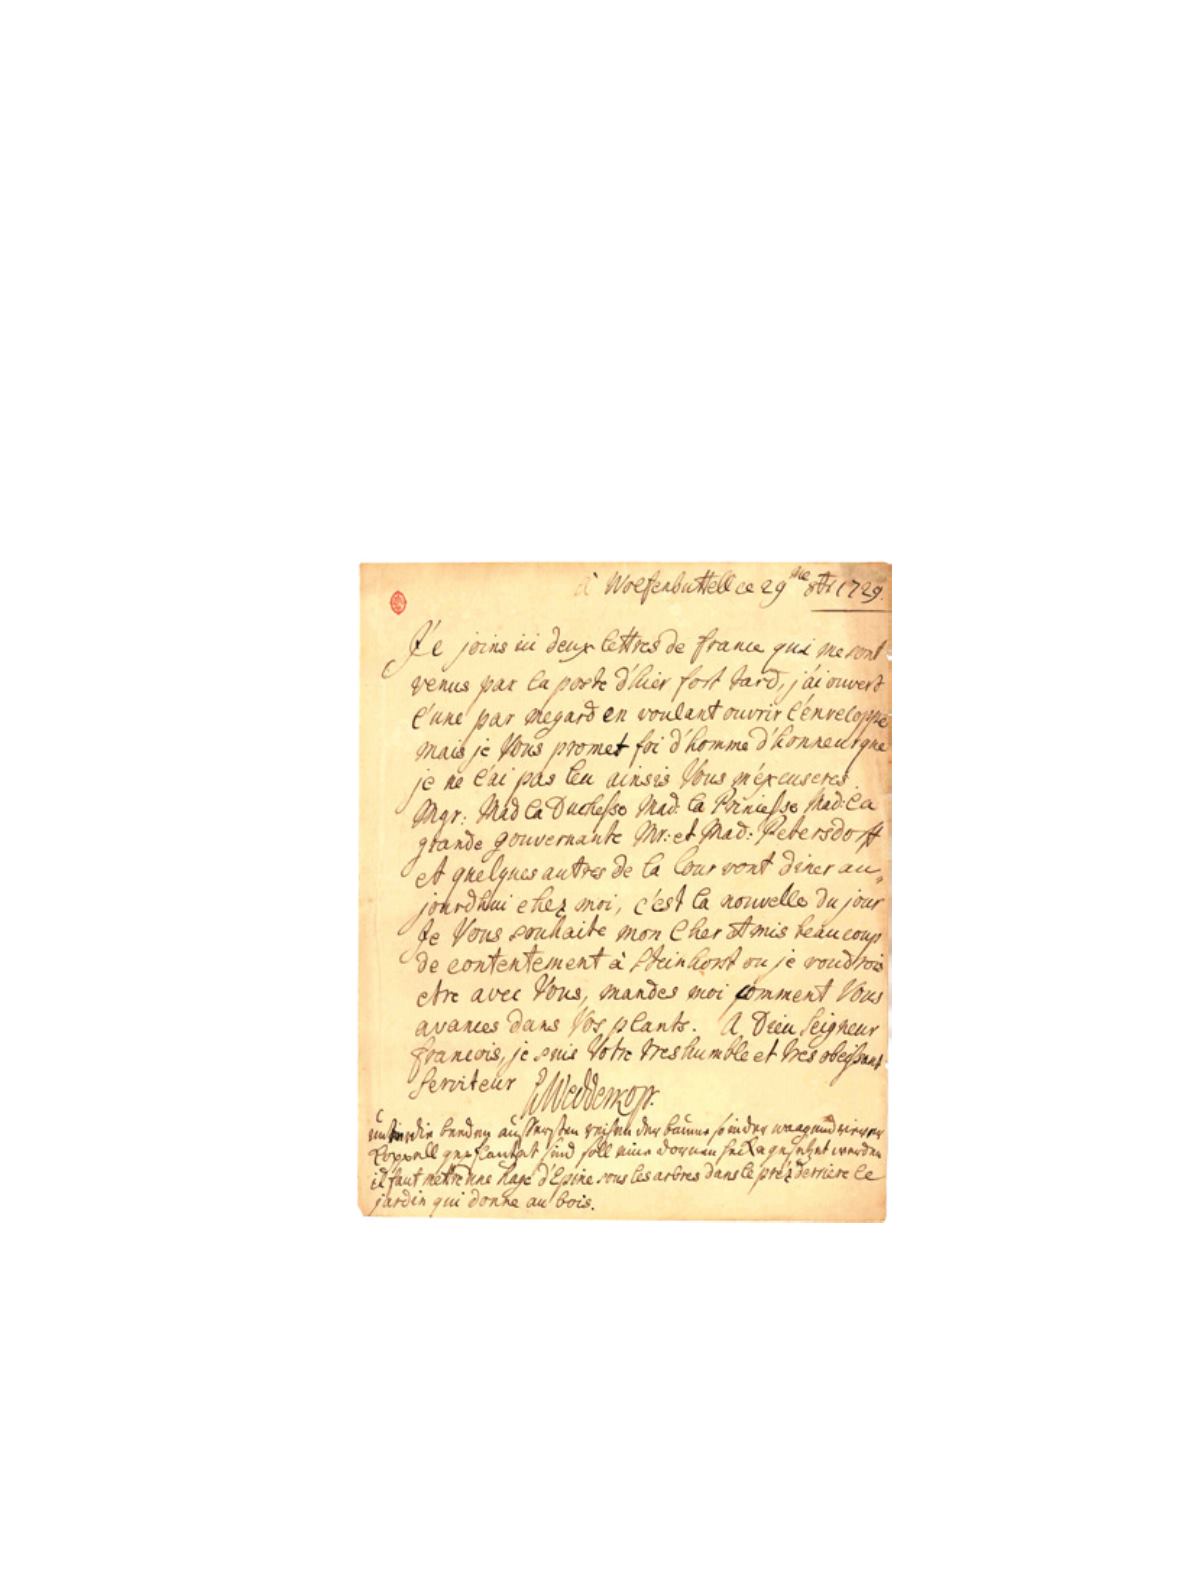 à Wolfenbuttell ce 29me 8br 1729.
Je joins ici deux lettres de france qui me sont
venus par la poste d'hier fort tard, j'ai ouvert
l'une par megard en voulant ouvrir l'enveloppe
mais je Vous promet foi d'homme d'honneur que
je ne l'ai pas leu ainsis Vous m'excuseres.
Mgr: Mad la Duchesse Mad: la Princesse Mad: la
grande gouvernante Mr: et Mad: Petersdorff
et quelques autres de la Cour vont diner au„
jourdhui chez moi, c'est la nouvelle du jour
Je Vous souhaite mon Cher Amis beaucoup
de contentement à Steinhorst ou je voudrois
etre avec Vous, mandes moi comment Vous
avances dans Vos plants. A Dieu Seigneur
francois, je suis Votre tres humble et tres obeissant
serviteur Wedderkop.
die beyden aussersten reihen der bäume so in der
gepflantzet sind soll eine dornen hecke gesetzet werden
il faut mettre une haye d'Epine sous les arbres dans le prez derriere le
jardin qui donne au bois.